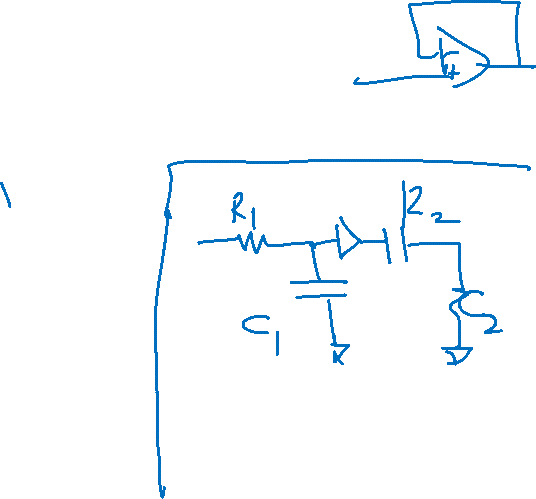 R1
R2
C1
C2